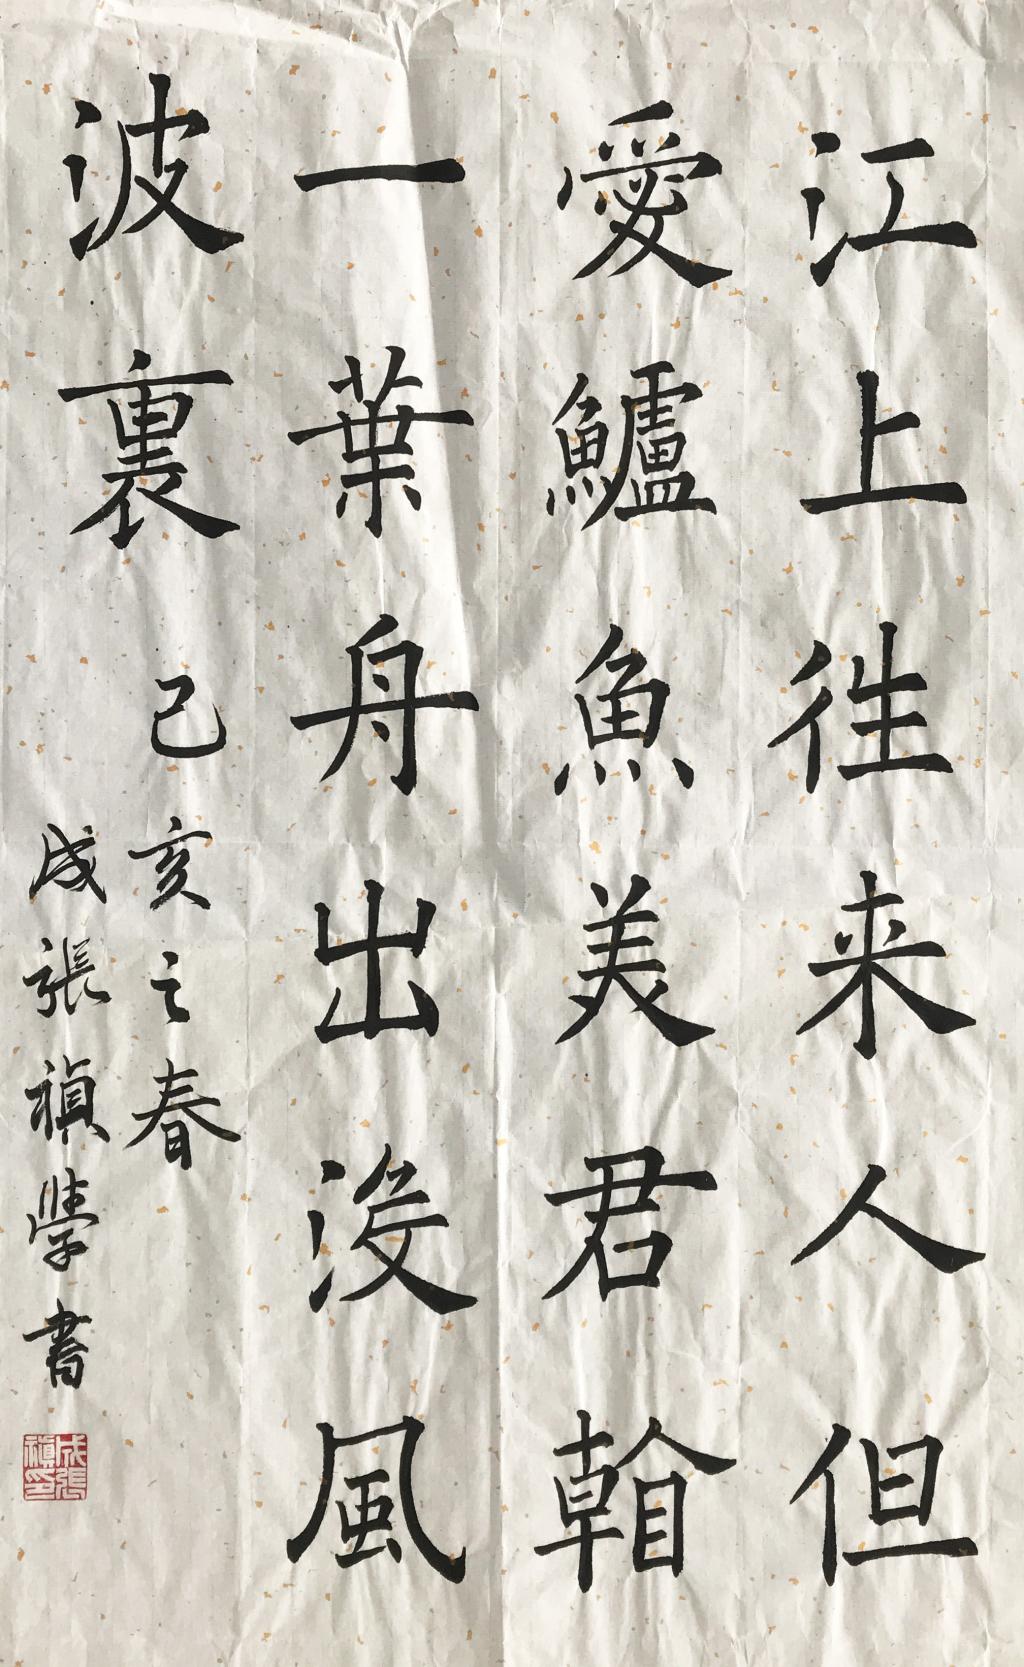 江上徃来人但
愛鱸魚美君看
一葉舟出沒風
波裏
己亥之春
成張禎學書
成張
禎印